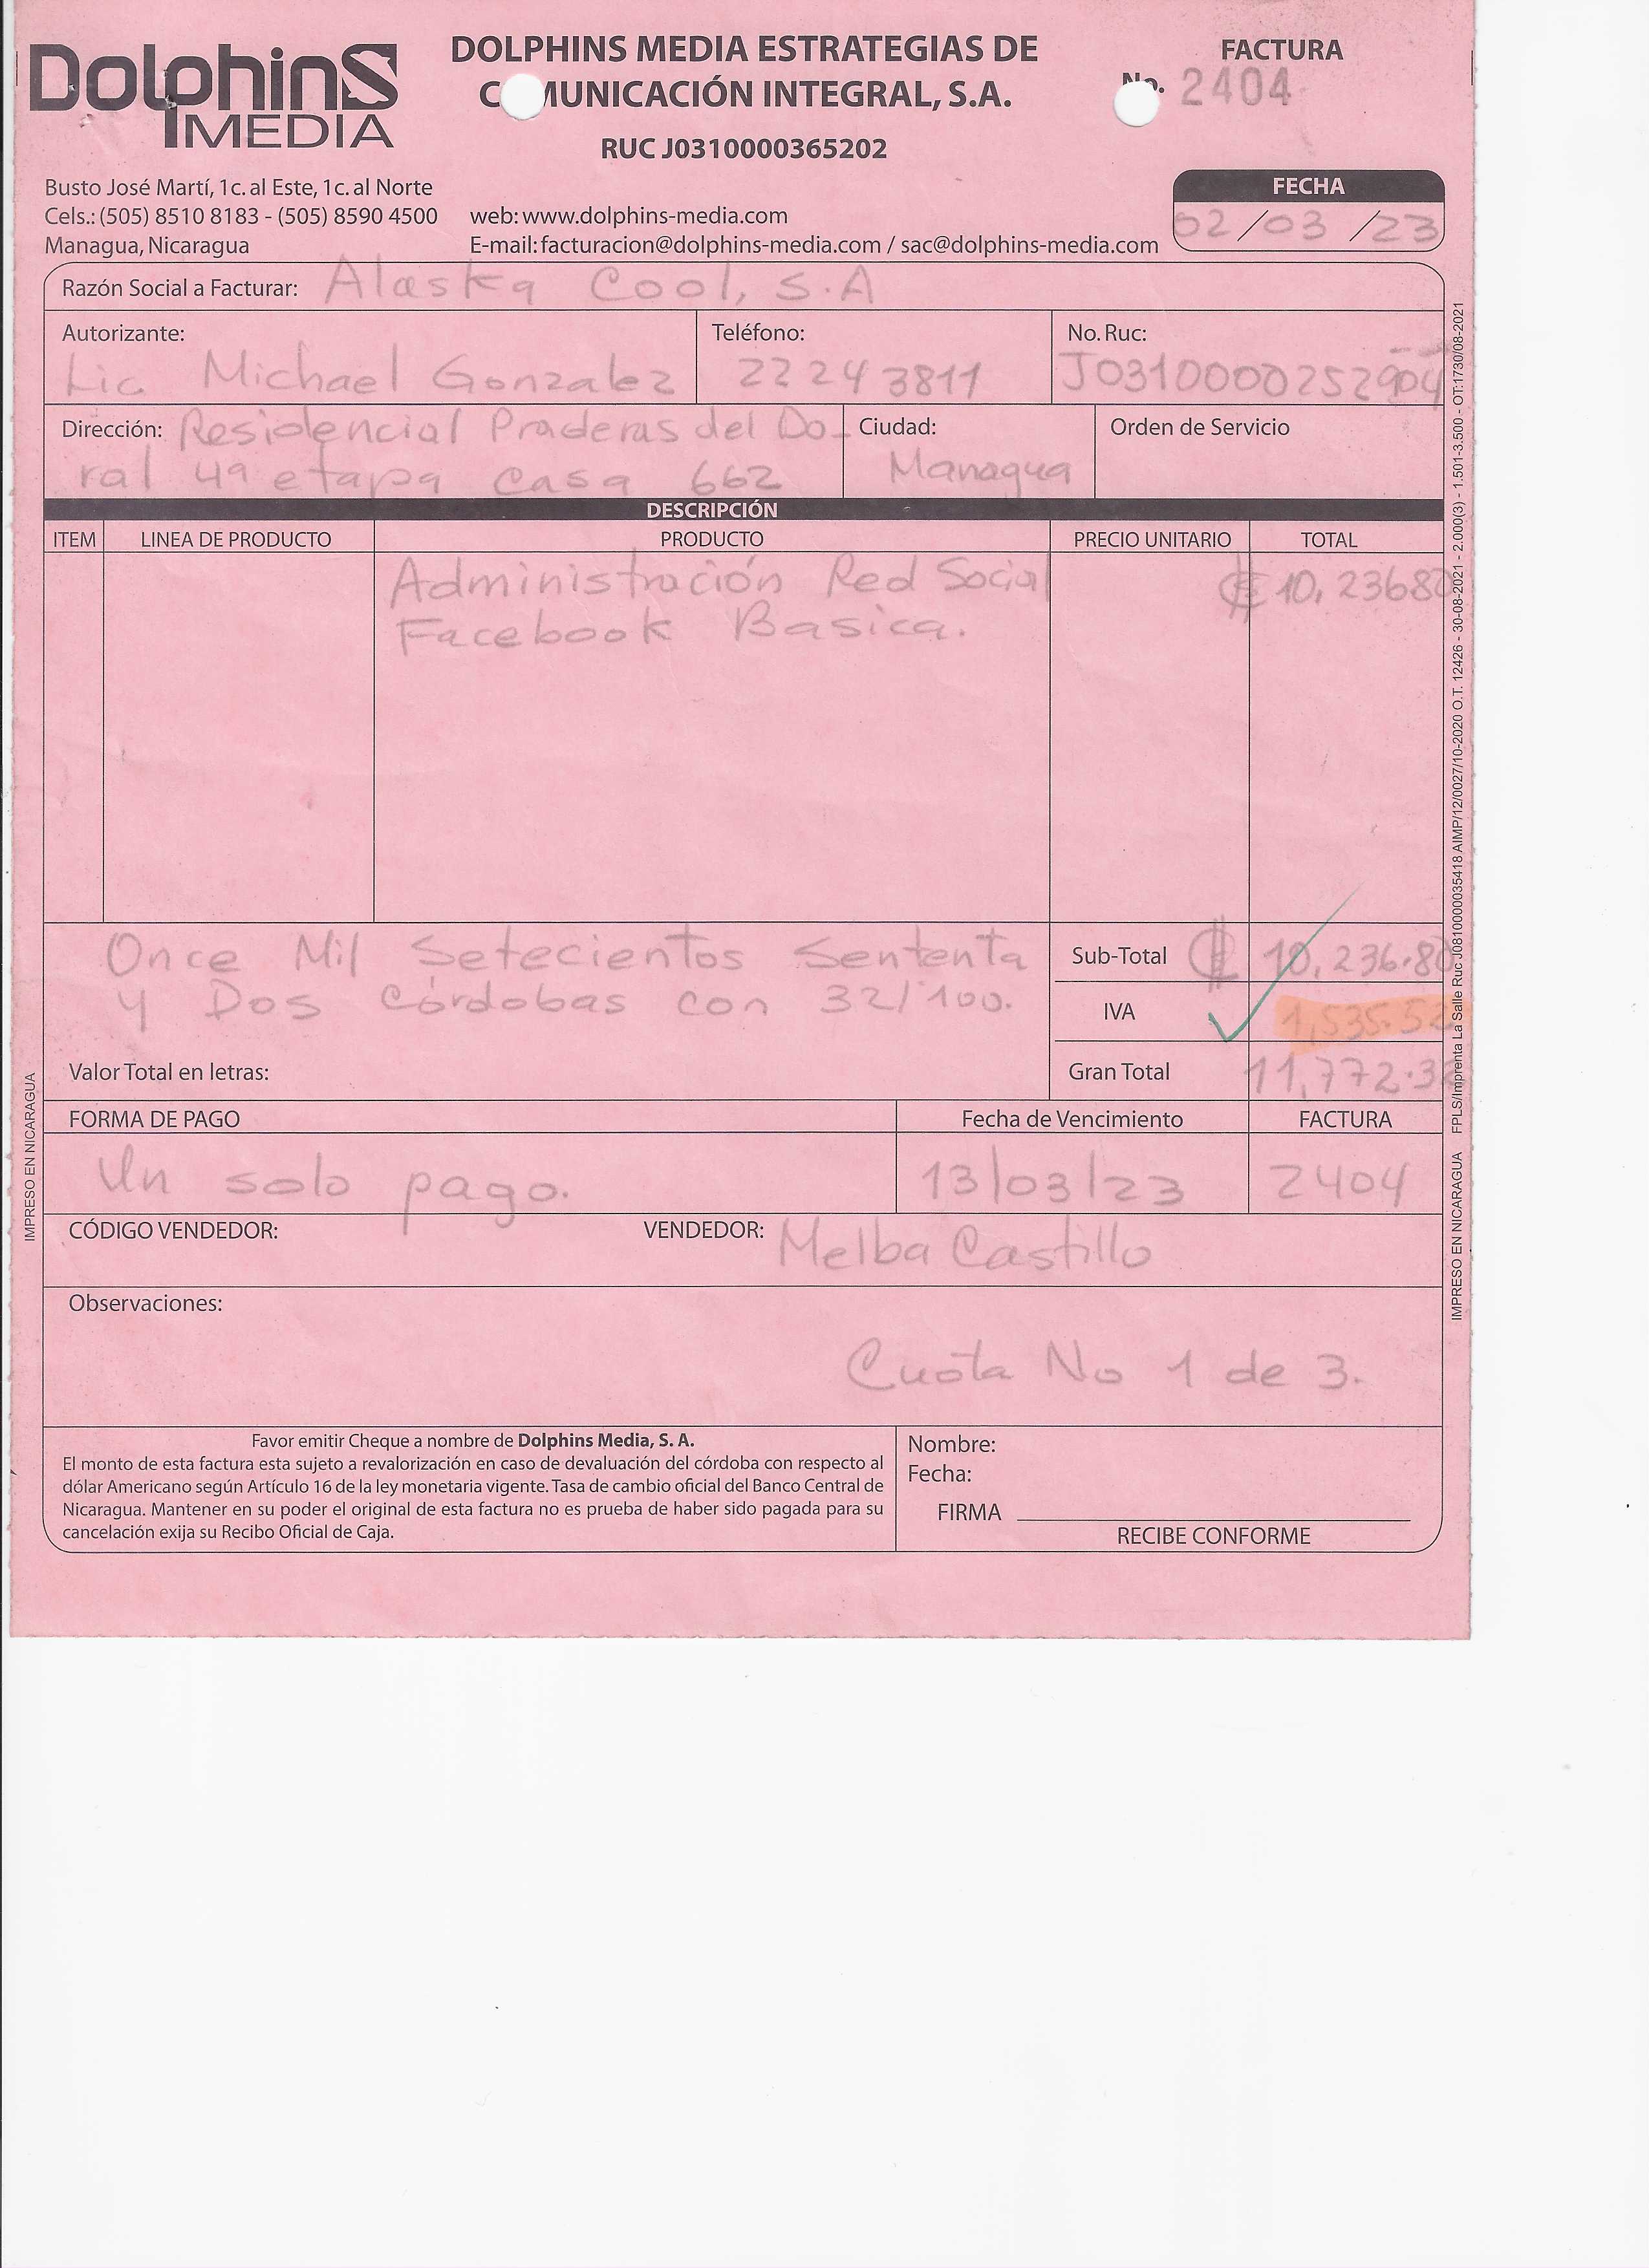 DolphinS
MEDIA
DOLPHINS MEDIA ESTRATEGIAS DE
COMUNICACIÓN INTEGRAL, S.A.
RUC J0310000365202
FACTURA
No. 2404
Busto José Martí, 1c. al Este, 1c. al Norte
Cels.: (505) 8510 8183 - (505) 8590 4500
Managua, Nicaragua
web: www.dolphins-media.com
E-mail: facturacion@dolphins-media.com / sac@dolphins-media.com
FECHA
02/03/23
Razón Social a Facturar: Alaska Cool, S.A
Autorizante:
Lic Michael Gonzalez
Teléfono:
2224 3811
No. Ruc:
J0310000252904
Dirección: Residencial Praderas del Do-
ral 4ª etapa casa 662
Ciudad:
Managua
Orden de Servicio
DESCRIPCIÓN
ITEM LINEA DE PRODUCTO PRODUCTO PRECIO UNITARIO TOTAL
Administración Red Social C$ 10,23680
Facebook Basica.
Once Mil Setecientos Sententa
y Dos Córdobas con 32/100.
Valor Total en letras:
Sub-Total C$ 10,236.80
IVA 1,535.52
Gran Total 11,772.32
FORMA DE PAGO Fecha de Vencimiento FACTURA
Un solo pago. 13/03/23 2404
CÓDIGO VENDEDOR: VENDEDOR: Melba Castillo
Observaciones:
Cuota No 1 de 3.
Favor emitir Cheque a nombre de Dolphins Media, S. A.
El monto de esta factura esta sujeto a revalorización en caso de devaluación del córdoba con respecto al
dólar Americano según Artículo 16 de la ley monetaria vigente. Tasa de cambio oficial del Banco Central de
Nicaragua. Mantener en su poder el original de esta factura no es prueba de haber sido pagada para su
cancelación exija su Recibo Oficial de Caja.
Nombre:
Fecha:
FIRMA
RECIBE CONFORME
IMPRESO EN NICARAGUA
IMPRESO EN NICARAGUA FPLS/Imprenta La Salle Ruc J0810000035418 AIMP/12/0027/10-2020 O.T. 12426 - 30-08-2021 - 2.000(3) - 1.501-3.500 - OT:1730/08-2021